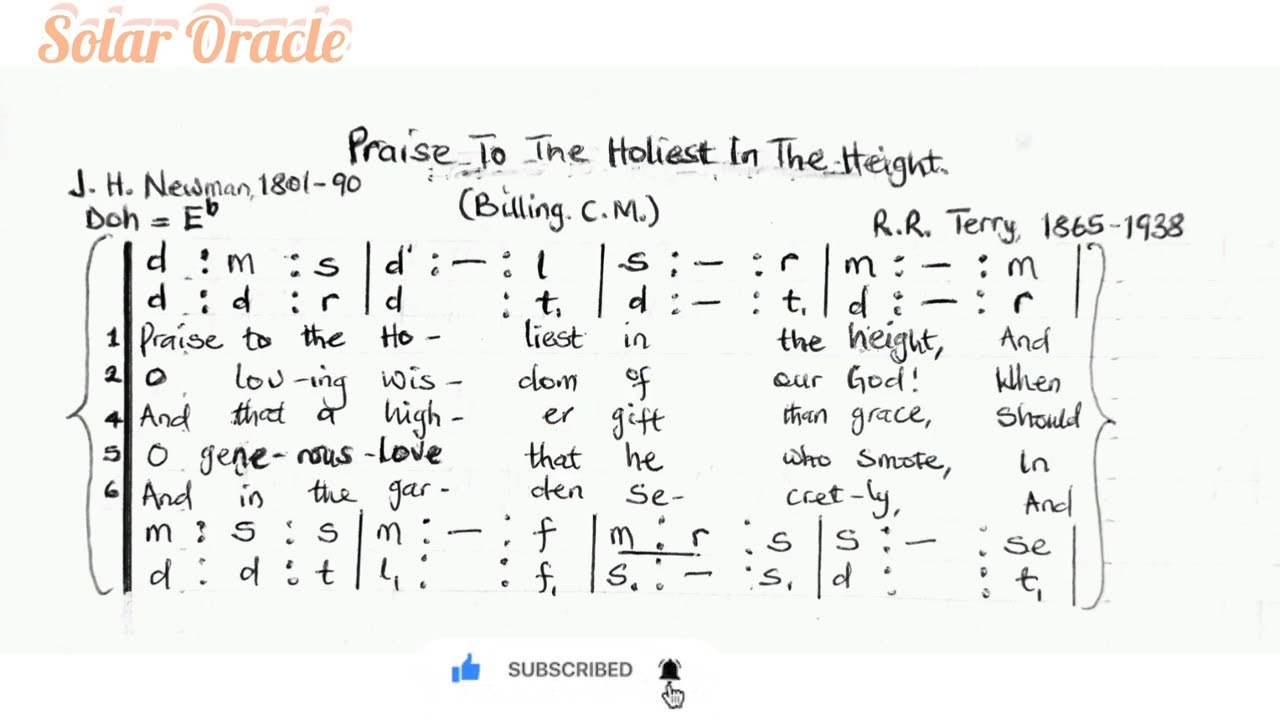 Solar Oracle
Praise To The Holiest In The Height.
J. H. Newman, 1801-90
(Billing. C.M.)
Doh = Eb
R.R. Terry, 1865-1938
d : m : s | d' : — : l | s : — : r | m : — : m |
d : d : r | d : t, | d : — : t, | d : — : r |
1 Praise to the Ho - liest in the height, And
2 O lov-ing wis - dom of our God! When
4 And that a high - er gift than grace, Should
5 O gene-rous-Love that he who smote, In
6 And in the gar - den se- cret-ly, And
m : s : s | m : — : f | m : r : s | s : — : se |
d : d : t | l, : : f, | s, : — : s, | d : : t, |
SUBSCRIBED